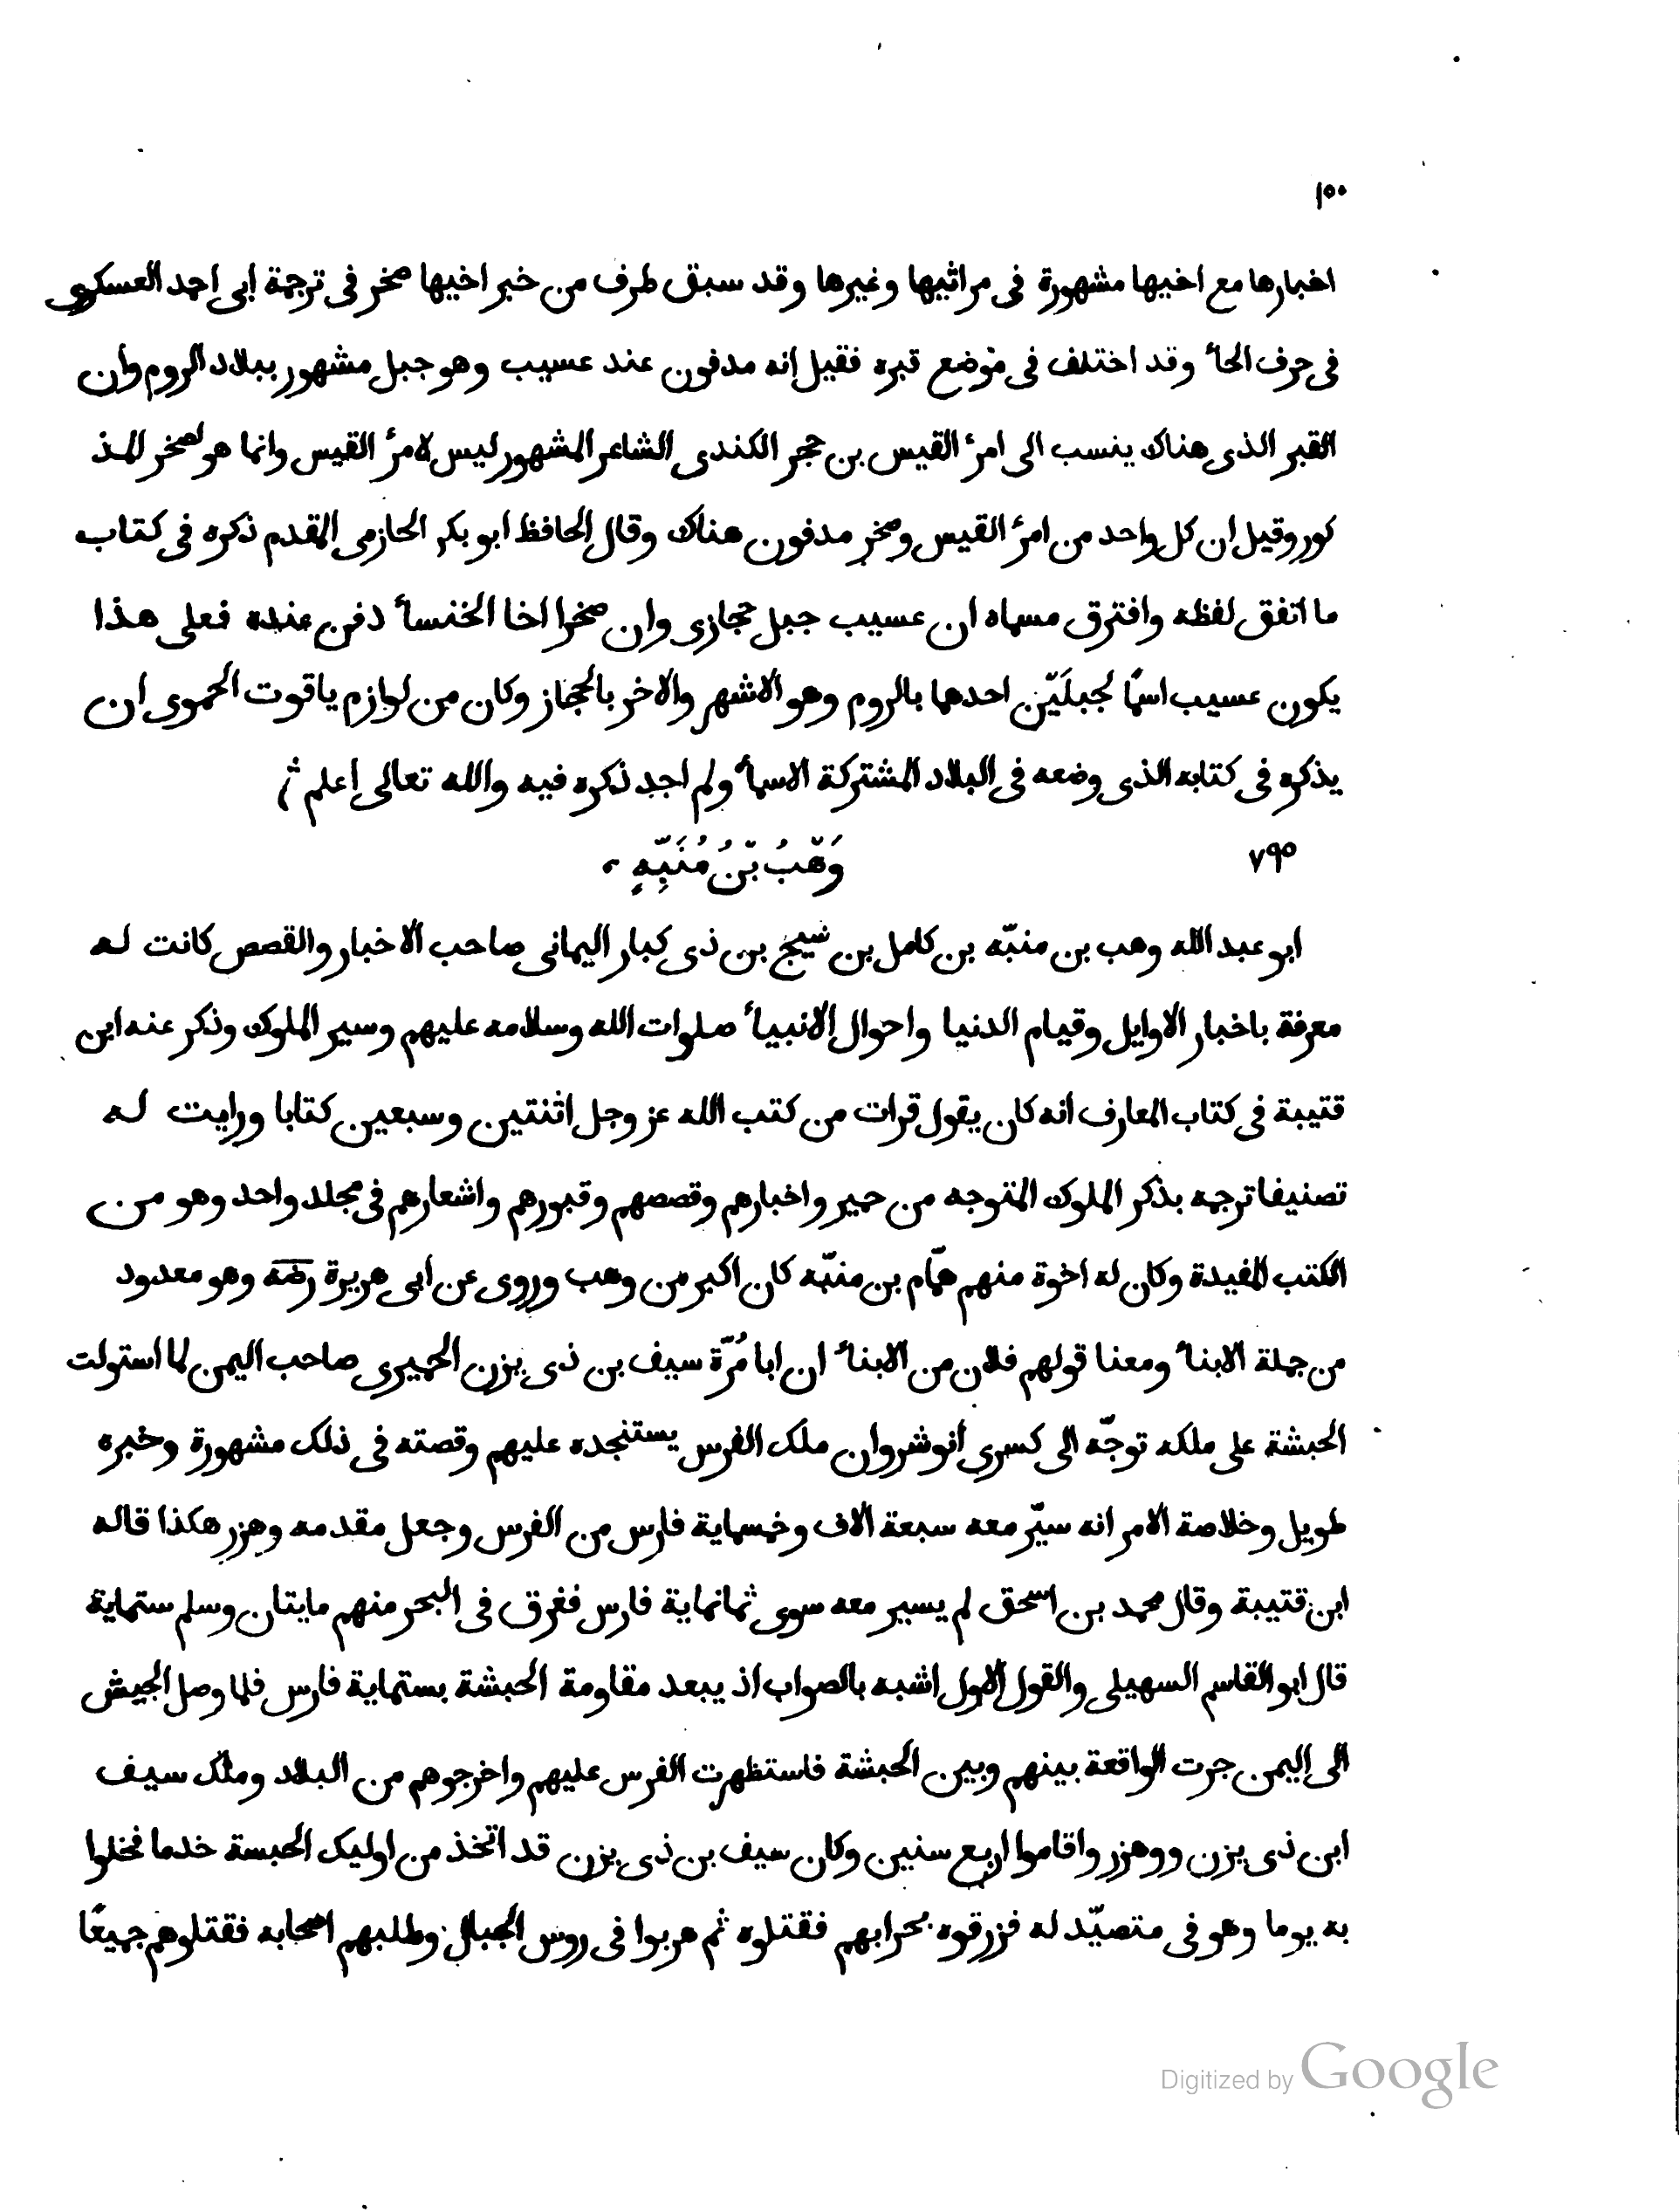 ١٥٠
اخبارها مع اخيها مشهورة فى مراثيها وغيرها وقد سبق طرف من خبر اخيها صخر فى ترجمة ابى احمد العسكرى
فى حرف الحأ وقد اختلف فى موضع قبره فقيل انه مدفون عند عسيب وهو جبل مشهور ببلاد الروم وان
القبر الذى هناك ينسب الى امرأ القيس بن حجر الكندى الشاعر المشهور ليس لامرأ القيس وانما هو لصخر المذ
كور وقيل ان كل واحد من امرأ القيس وصخر مدفون هناك وقال الحافظ ابو بكر الحازمى المقدم ذكره فى كتاب
ما اتفق لفظه وافترق مسماه ان عسيب جبل حجازى وان صخرا اخا الخنسأ دفن عنده فعلى هذا
يكون عسيب اسمًا لجبلَيْن احدهما بالروم وهو الاشهر والاخر بالحجاز وكان من لوازم ياقوت الحموى ان
يذكره فى كتابه الذى وضعه فى البلاد المشتركة الاسمأ ولم اجد ذكره فيه والله تعالى اعلم ثم
٧٩٥ وَهْبُ بْنُ مُنَبِّهٍ
ابو عبد الله وهب بن منبّه بن كامل بن شيج بن ذى كبار اليمانى صاحب الاخبار والقصص كانت له
معرفة باخبار الاوايل وقيام الدنيا واحوال الانبيأ صلوات الله وسلامه عليهم وسير الملوك وذكر عنه ابن
قتيبة فى كتاب المعارف انه كان يقول قرات من كتب الله عز وجل اثنتين وسبعين كتابا ورايت له
تصنيفا ترجمه بذكر الملوك المتوجه من حمير واخبارهم وقصصهم وقبورهم واشعارهم فى مجلد واحد وهو من
الكتب المفيدة وكان له اخوة منهم همّام بن منبّه كان اكبر من وهب وروى عن ابى هريرة رضه وهو معدود
من جملة الابنأ ومعنا قولهم فلان من الابنأ ان ابا مُرّة سيف بن ذى يزن الحميرى صاحب اليمن لما استولت
الحبشة على ملكه توجّه الى كسرى أنوشروان ملك الفرس يستنجده عليهم وقصته فى ذلك مشهورة وخبره
طويل وخلاصة الامر انه سيّر معه سبعة الاف وخمسماية فارس من الفرس وجعل مقدمه وهزر هكذا قاله
ابن قتيبة وقال محمد بن اسحق لم يسير معه سوى ثمانماية فارس فغرق فى البحر منهم مايتان وسلم ستماية
قال ابو القاسم السهيلى والقول الاول اشبه بالصواب اذ يبعد مقاومة الحبشة بستماية فارس فلما وصل الجيش
الى اليمن جرت الواقعة بينهم وبين الحبشة فاستظهرت الفرس عليهم واخرجوهم من البلاد وملك سيف
ابن ذى يزن ووهزر واقاموا اربع سنين وكان سيف بن ذى يزن قد اتخذ من اوليك الحبسة خدما فخلوا
به يوما وهو فى متصيّد له فزرقوه بحرابهم فقتلوه ثم هربوا فى روس الجبال وطلبهم اصحابه فقتلوهم جميعًا
Digitized by Google